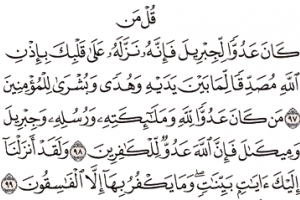 قُلْ مَن
كَانَ عَدُوًّا لِّجِبْرِيلَ فَإِنَّهُۥ نَزَّلَهُۥ عَلَىٰ قَلْبِكَ بِإِذْنِ
ٱللَّهِ مُصَدِّقًا لِّمَا بَيْنَ يَدَيْهِ وَهُدًى وَبُشْرَىٰ لِلْمُؤْمِنِينَ
٩٧ مَن كَانَ عَدُوًّا لِّلَّهِ وَمَلَٰٓئِكَتِهِۦ وَرُسُلِهِۦ وَجِبْرِيلَ
وَمِيكَىٰلَ فَإِنَّ ٱللَّهَ عَدُوٌّ لِّلْكَٰفِرِينَ ٩٨ وَلَقَدْ أَنزَلْنَآ
إِلَيْكَ ءَايَٰتٍۭ بَيِّنَٰتٍ ۖ وَمَا يَكْفُرُ بِهَآ إِلَّا ٱلْفَٰسِقُونَ ٩٩